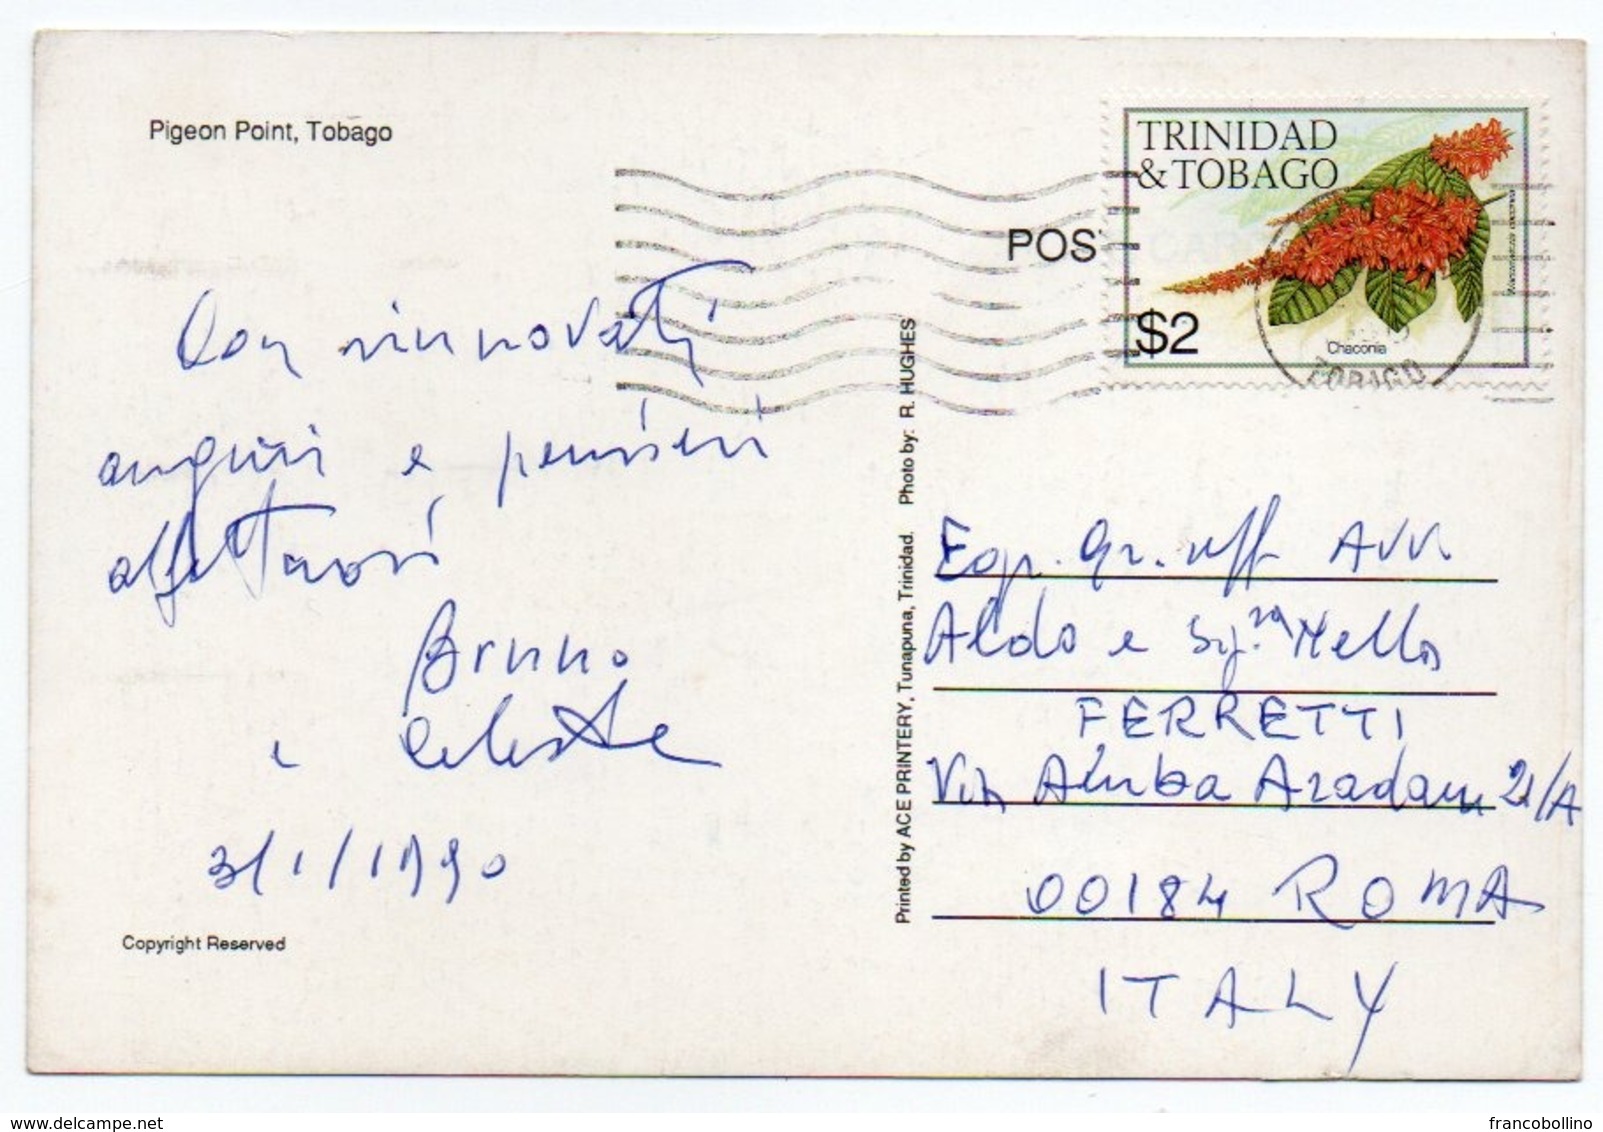 Pigeon Point, Tobago
TRINIDAD
& TOBAGO
POS
$2
Chaconia
TOBAGO
Con rinnovati
auguri e pensieri
affettuosi
Bruno
e Celeste
3/1/1990
Copyright Reserved
Printed by ACE PRINTERY, Tunapuna, Trinidad. Photo by: R. HUGHES
Egr. Gr. Uff AVV.
Aldo e Sig.ra Mella
FERRETTI
Via Amba Aradam 21/A
00184 ROMA
ITALY
www.delcampe.net
francobollino